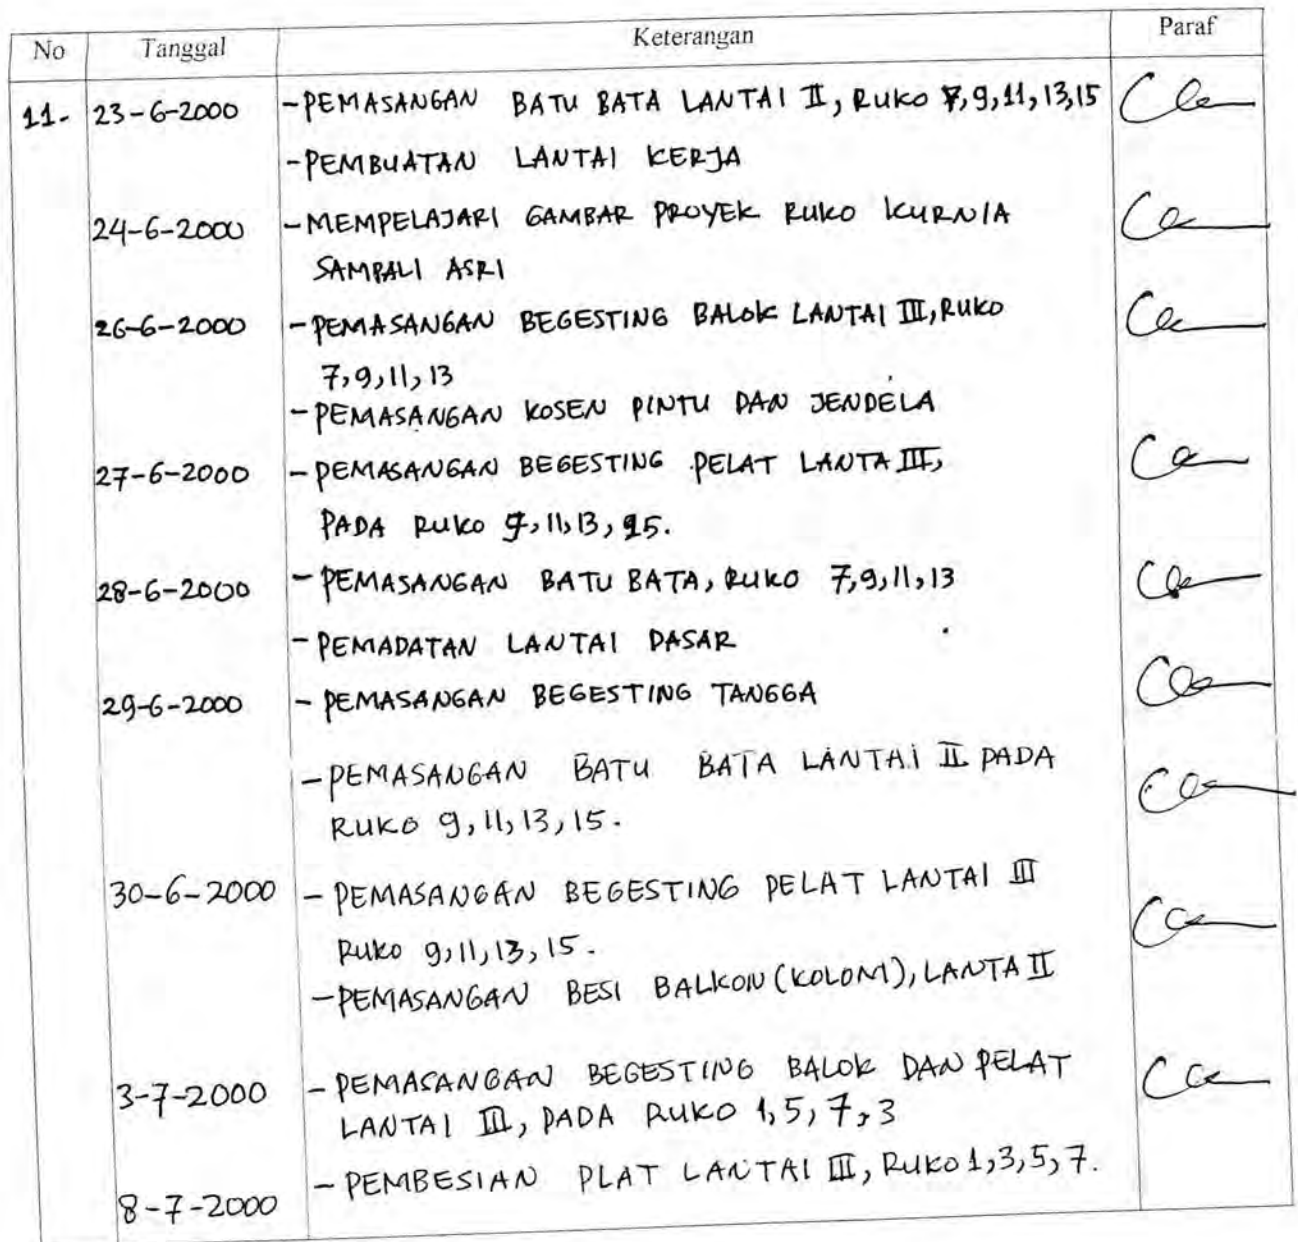 No Tanggal Keterangan Paraf
11. 23-6-2000 -PEMASANGAN BATU BATA LANTAI II, RUKO 7,9,11,13,15
-PEMBUATAN LANTAI KERJA
24-6-2000 -MEMPELAJARI GAMBAR PROYEK RUKO KURNIA
SAMPALI ASRI
26-6-2000 -PEMASANGAN BEGESTING BALOK LANTAI III, RUKO
7,9,11,13
-PEMASANGAN KOSEN PINTU DAN JENDELA
27-6-2000 -PEMASANGAN BEGESTING PELAT LANTA III,
PADA RUKO 9,11,13,15.
28-6-2000 -PEMASANGAN BATU BATA, RUKO 7,9,11,13
-PEMADATAN LANTAI DASAR
29-6-2000 -PEMASANGAN BEGESTING TANGGA
-PEMASANGAN BATU BATA LANTAI II PADA
RUKO 9,11,13,15.
30-6-2000 -PEMASANGAN BEGESTING PELAT LANTAI III
RUKO 9,11,13,15.
-PEMASANGAN BESI BALKON (KOLOM), LANTA II
3-7-2000 -PEMASANGAN BEGESTING BALOK DAN PELAT
LANTAI III, PADA RUKO 1,5,7,3
8-7-2000 -PEMBESIAN PLAT LANTAI III, RUKO 1,3,5,7.